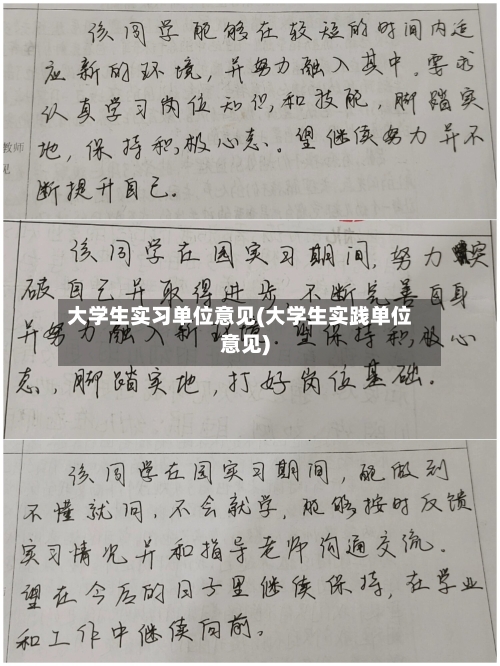 该同学能够在较短的时间内适
应新的环境，并努力融入其中，要求
认真学习岗位知识，和技能，脚踏实
教师
地，保持积极心态。望继续努力并不
见
断提升自己。
该同学在园实习期间，努力突
破自己并取得进步，不断完善自身
大学生实习单位意见(大学生实践单位
意见)
并努力融入新环境。望保持积极心
态，脚踏实地，打好岗位基础。
该同学在园实习期间，能做到
不懂就问，不会就学，能够按时反馈
实习情况并和指导老师沟通交流。
望在今后的日子里继续保持，在学业
和工作中继续向前。